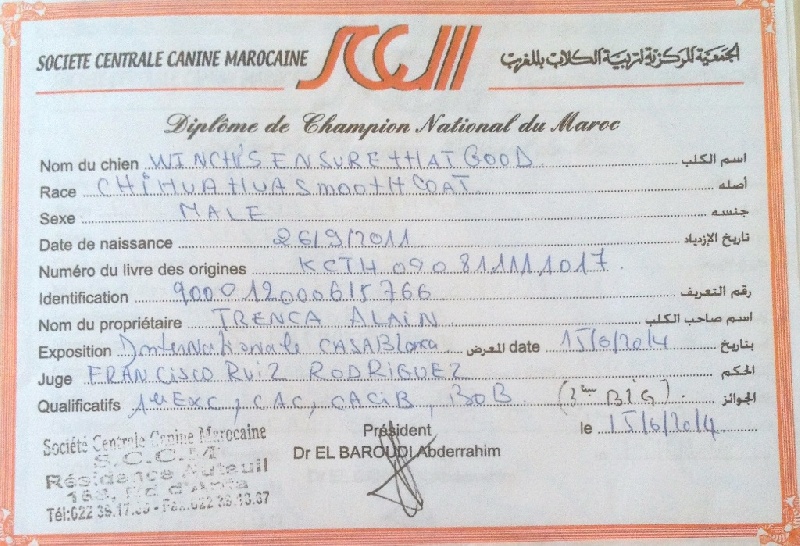 SOCIETE CENTRALE CANINE MAROCAINE SCCM الجمعية المركزية لتربية الكلاب بالمغرب
Diplôme de Champion National du Maroc
Nom du chien WINCH'S ENSURE THAT GOOD اسم الكلب
Race CHIHUAHUA SMOOTH COAT أصله
Sexe MALE جنسه
Date de naissance 26/9/2011 تاريخ الإزدياد
Numéro du livre des origines KCTH 090 81111 1017 رقم التعريف
Identification 900012000615766
Nom du propriétaire TRENCA ALAIN اسم صاحب الكلب
Exposition Internationale CASABlanca المعرض date 15/6/2014 بتاريخ
Juge FRANCISCO RUIZ RODRIGUEZ الحكم
Qualificatifs 1er EXC, CAC, CACIB, BOB (2ème BIG). الجوائز
Président le 15/6/2014
Dr EL BAROUDI Abderrahim
Société Centrale Canine Marocaine
S.C.C.M
Résidence Auteuil
Bd d'Anfa